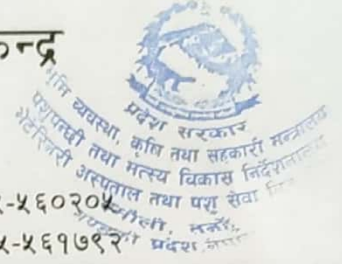 न्द्र
प्रदेश सरकार
भूमि व्यवस्था, कृषि तथा सहकारी मन्त्रालय
पशुपन्छी तथा मत्स्य विकास निर्देशनालय
भेटेरिनरी अस्पताल तथा पशु सेवा
५-५६०२०५
५-५६१७९२
प्रदेश, नेपाल